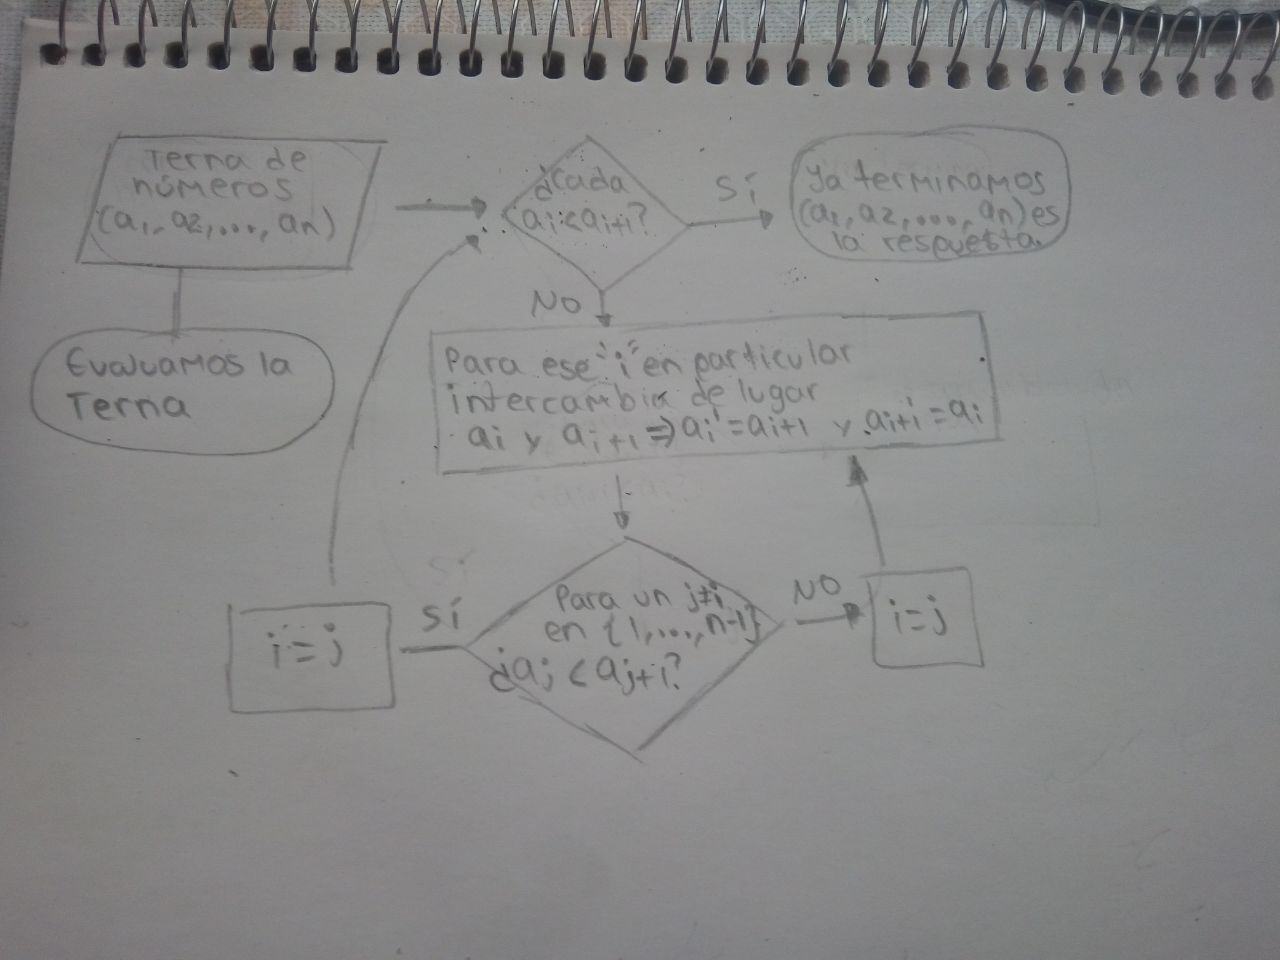 Terna de
números
(a₁, a₂, ..., aₙ)
Evaluamos la
Terna
¿cada
aᵢ<aᵢ₊₁?
Sí
Ya terminamos
(a₁, a₂, ..., aₙ) es
la respuesta.
NO
Para ese "i" en particular
intercambia de lugar
aᵢ y aᵢ₊₁ ⇒ aᵢ' = aᵢ₊₁ y aᵢ₊₁' = aᵢ
Para un j≠i
en {1, ..., n-1}
¿aⱼ < aⱼ₊₁?
Sí
i=j
NO
i=j